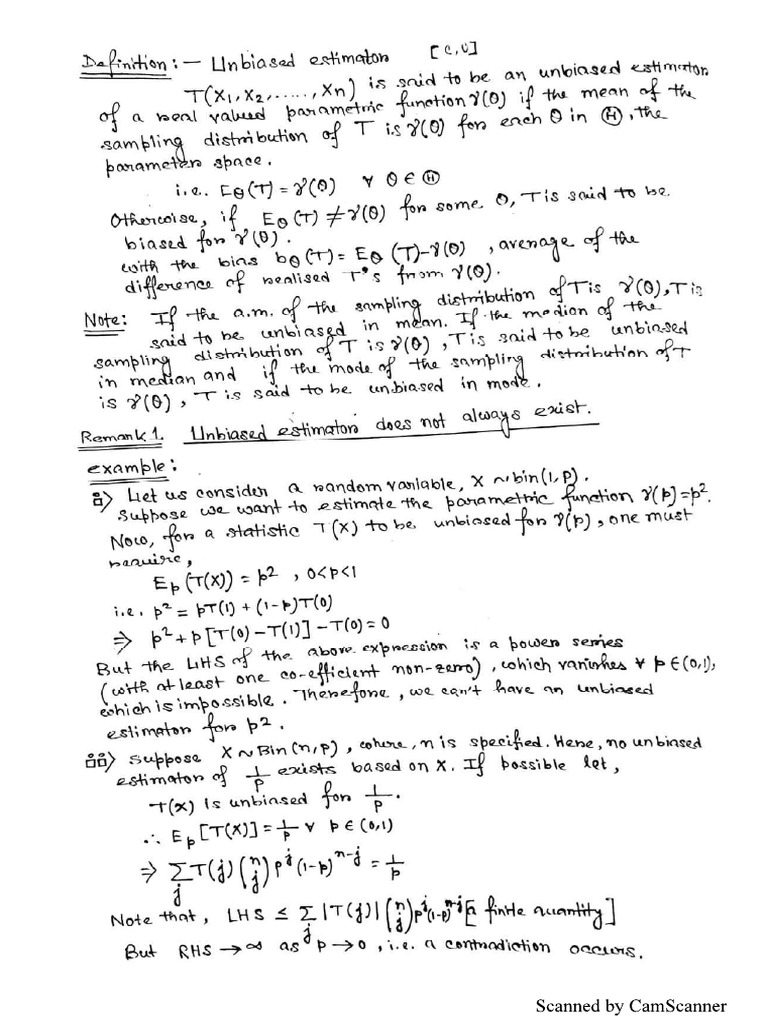 Definition: — Unbiased estimator [C.U]
T(X₁, X₂, ......, Xn) is said to be an unbiased estimator
of a real valued parametric function γ(θ) if the mean of the
sampling distribution of T is γ(θ) for each θ in Ⓗ, the
parameter space.
i.e. Eθ(T) = γ(θ) ∀ θ ∈ Ⓗ
Otherwise, if Eθ(T) ≠ γ(θ) for some θ, T is said to be
biased for γ(θ).
with the bias bθ(T) = Eθ(T) - γ(θ), average of the
difference of realised T's from γ(θ).
Note: If the a.m. of the sampling distribution of T is γ(θ), T is
said to be unbiased in mean. If the median of the
sampling distribution of T is γ(θ), T is said to be unbiased
in median and if the mode of the sampling distribution of T
is γ(θ), T is said to be unbiased in mode.
Remark 1. Unbiased estimator does not always exist.
example:
i) Let us consider a random variable, X ~ bin(1, p).
Suppose we want to estimate the parametric function γ(p) = p².
Now, for a statistic T(X) to be unbiased for γ(p), one must
require,
Ep(T(X)) = p², 0<p<1
i.e. p² = pT(1) + (1-p)T(0)
⇒ p² + p[T(0) - T(1)] - T(0) = 0
But the LHS of the above expression is a power series
(with at least one co-efficient non-zero), which vanishes ∀ p ∈ (0,1),
which is impossible. Therefore, we can't have an unbiased
estimator for p².
ii) Suppose X ~ Bin(n, p), where, n is specified. Here, no unbiased
estimator of 1/p exists based on X. If possible let,
T(X) is unbiased for 1/p.
∴ Ep[T(X)] = 1/p ∀ p ∈ (0,1)
⇒ ∑_j T(j) (n j) p^j (1-p)^{n-j} = 1/p
Note that, LHS ≤ ∑_j |T(j)| (n j) p^j (1-p)^{n-j} [a finite quantity]
But RHS → ∞ as p → 0, i.e. a contradiction occurs.
Scanned by CamScanner